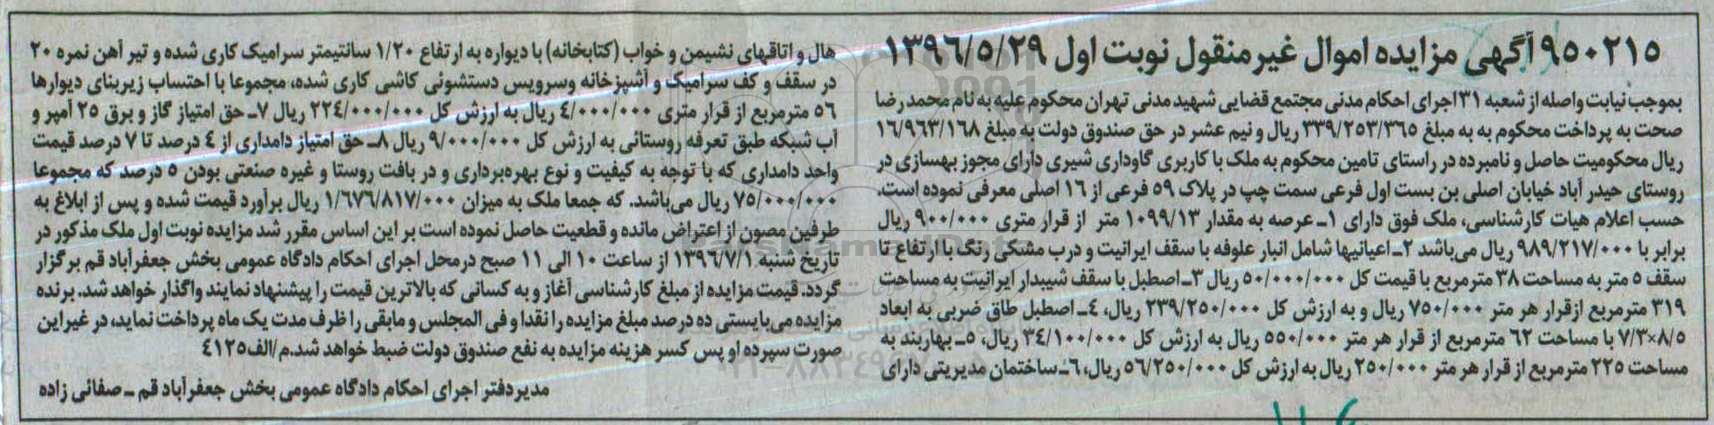 ۹۵۰۲۱۵ آگهی مزایده اموال غیر منقول نوبت اول ۱۳۹۶/۵/۲۹
بموجب نیابت واصله از شعبه ۳۱ اجرای احکام مدنی مجتمع قضایی شهید مدنی تهران محکوم علیه به نام محمد رضا
صحت به پرداخت محکوم به به مبلغ ۳۳۹/۲۵۳/۳۶۵ ریال و نیم عشر در حق صندوق دولت به مبلغ ۱۶/۹۶۳/۱۶۸
ریال محکومیت حاصل و نامبرده در راستای تامین محکوم به ملک با کاربری گاوداری شیری دارای مجوز بهسازی در
روستای حیدر آباد خیابان اصلی بن بست اول فرعی سمت چپ در پلاک ۵۹ فرعی از ۱۶ اصلی معرفی نموده است.
حسب اعلام هیات کارشناسی، ملک فوق دارای ۱ـ عرصه به مقدار ۱۰۹۹/۱۳ متر از قرار متری ۹۰۰/۰۰۰ ریال
برابر با ۹۸۹/۲۱۷/۰۰۰ ریال می‌باشد ۲ـ اعیانیها شامل انبار علوفه با سقف ایرانیت و درب مشکی رنگ با ارتفاع تا
سقف ۵ متر به مساحت ۳۸ مترمربع با قیمت کل ۵۰/۰۰۰/۰۰۰ ریال ۳ـ اصطبل با سقف شیبدار ایرانیت به مساحت
۳۱۹ مترمربع ازقرار هر متر ۷۵۰/۰۰۰ ریال و به ارزش کل ۲۳۹/۲۵۰/۰۰۰ ریال، ۴ـ اصطبل طاق ضربی به ابعاد
۷/۳×۸/۵ با مساحت ۶۲ مترمربع از قرار هر متر ۵۵۰/۰۰۰ ریال به ارزش کل ۳۴/۱۰۰/۰۰۰ ریال، ۵ـ بهاربند به
مساحت ۲۲۵ مترمربع از قرار هر متر ۲۵۰/۰۰۰ ریال به ارزش کل ۵۶/۲۵۰/۰۰۰ ریال، ۶ـ ساختمان مدیریتی دارای
هال و اتاقهای نشیمن و خواب (کتابخانه) با دیواره به ارتفاع ۱/۲۰ سانتیمتر سرامیک کاری شده و تیر آهن نمره ۲۰
در سقف و کف سرامیک و آشپزخانه وسرویس دستشوئی کاشی کاری شده، مجموعا با احتساب زیربنای دیوارها
۵۶ مترمربع از قرار متری ۴/۰۰۰/۰۰۰ ریال به ارزش کل ۲۲۴/۰۰۰/۰۰۰ ریال ۷ـ حق امتیاز گاز و برق ۲۵ آمپر و
آب شبکه طبق تعرفه روستائی به ارزش کل ۹/۰۰۰/۰۰۰ ریال ۸ـ حق امتیاز دامداری از ۴ درصد تا ۷ درصد قیمت
واحد دامداری که با توجه به کیفیت و نوع بهره‌برداری و در بافت روستا و غیره صنعتی بودن ۵ درصد که مجموعا
۷۵/۰۰۰/۰۰۰ ریال می‌باشد. که جمعا ملک به میزان ۱/۶۷۶/۸۱۷/۰۰۰ ریال برآورد قیمت شده و پس از ابلاغ به
طرفین مصون از اعتراض مانده و قطعیت حاصل نموده است بر این اساس مقرر شد مزایده نوبت اول ملک مذکور در
تاریخ شنبه ۱۳۹۶/۷/۱ از ساعت ۱۰ الی ۱۱ صبح درمحل اجرای احکام دادگاه عمومی بخش جعفرآباد قم برگزار
گردد. قیمت مزایده از مبلغ کارشناسی آغاز و به کسانی که بالاترین قیمت را پیشنهاد نمایند واگذار خواهد شد. برنده
مزایده می‌بایستی ده درصد مبلغ مزایده را نقدا و فی المجلس و مابقی را ظرف مدت یک ماه پرداخت نماید، در غیر این
صورت سپرده او پس کسر هزینه مزایده به نفع صندوق دولت ضبط خواهد شد.م/الف۴۱۲۵
مدیر دفتر اجرای احکام دادگاه عمومی بخش جعفرآباد قم ـ صفائی زاده